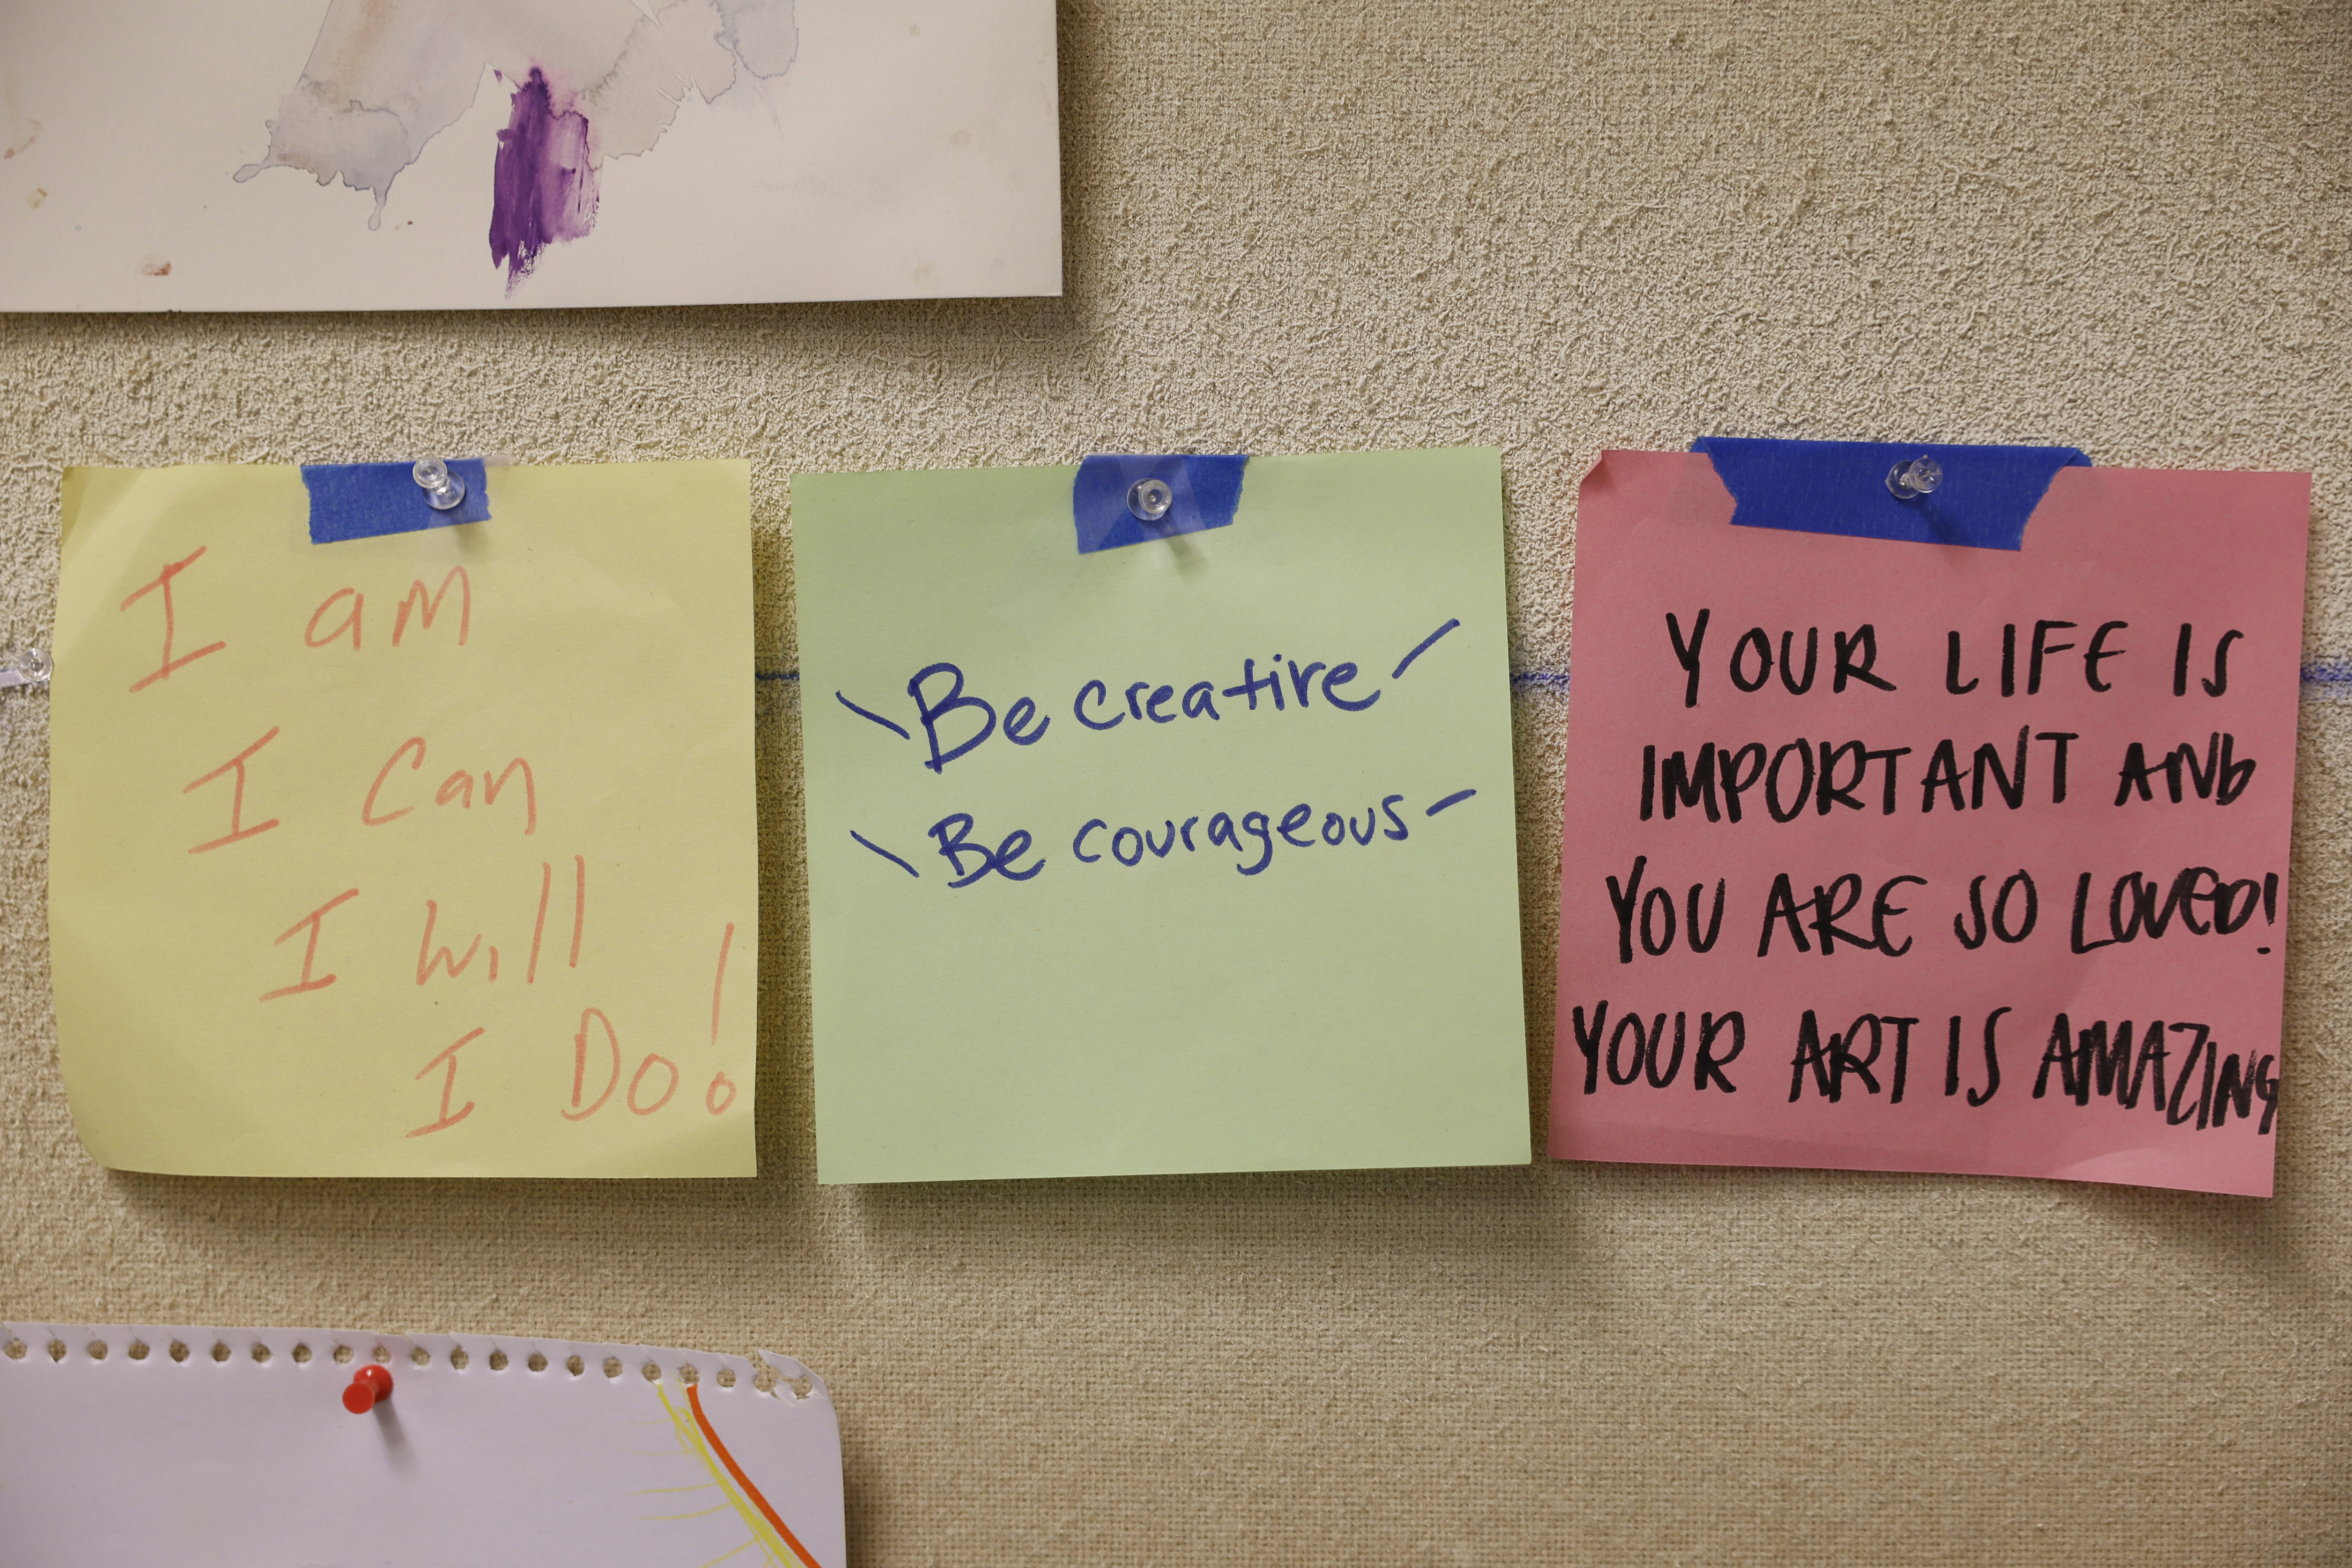 I am
I Can
I will
I Do!
Be creative
Be courageous
YOUR LIFE IS
IMPORTANT AND
YOU ARE SO LOVED!
YOUR ART IS AMAZING